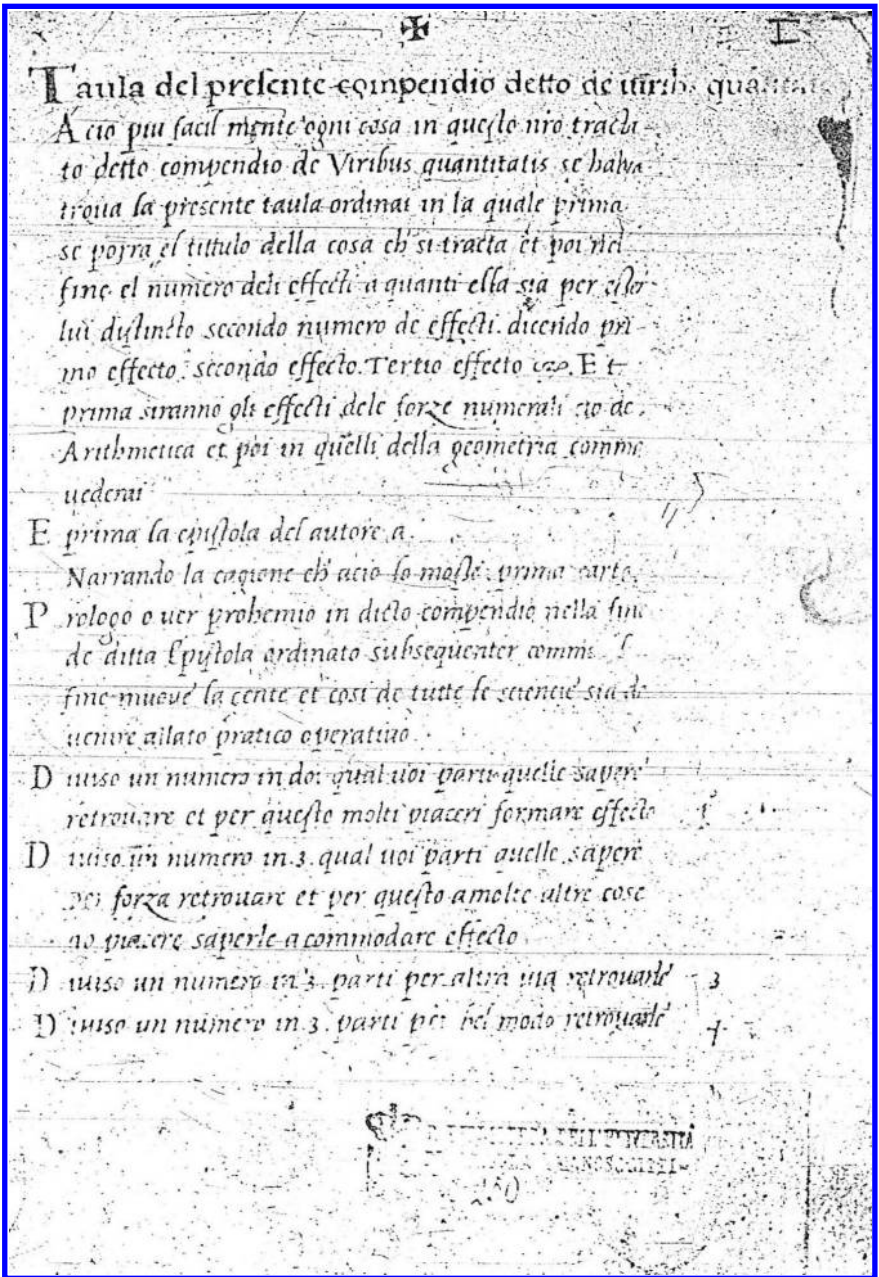 I
Taula del presente compendio detto de uiribus quanti
A cio piu facil mente ogni cosa in questo nro tracta
to detto compendio de Viribus quantitatis se habia
troua la presente taula ordinai in la quale prima
se porra el tittulo della cosa ch si tracta et poi nel
fine el numero deli effecti a quanti ella sia per
lui distincto secondo numero de effecti. dicendo pri
mo effecto. secondo effecto. Tertio effecto Et
prima siranno gli effecti dele forze numerali cio de
Arithmetica et poi in quelli della geometria comme
uederai
E prima la epistola del autore a.
Narrando la cagione ch acio lo mosse. prima carta.
Prologo o uer prohemio in dicto compendio nella fine
de ditta Epistola ordinato subsequenter comme
fine muove la cente et cosi de tutte le sciencie sia de
uenire allato pratico operativo.
Diuiso un numero in doi qual uoi parti quelle sapere
retrouare et per questo molti piaceri formare effecto 1
Diuiso un numero in .3. qual uoi parti quelle sapere
per forza retrouare et per questo a molte altre cose
piacere saperle acommodare effecto
Diuiso un numero in 3. parti per altra uia retrouarle 3
Diuiso un numero in 3. parti per bel modo retrouarle 4
DELL'UNIVERSITÀ